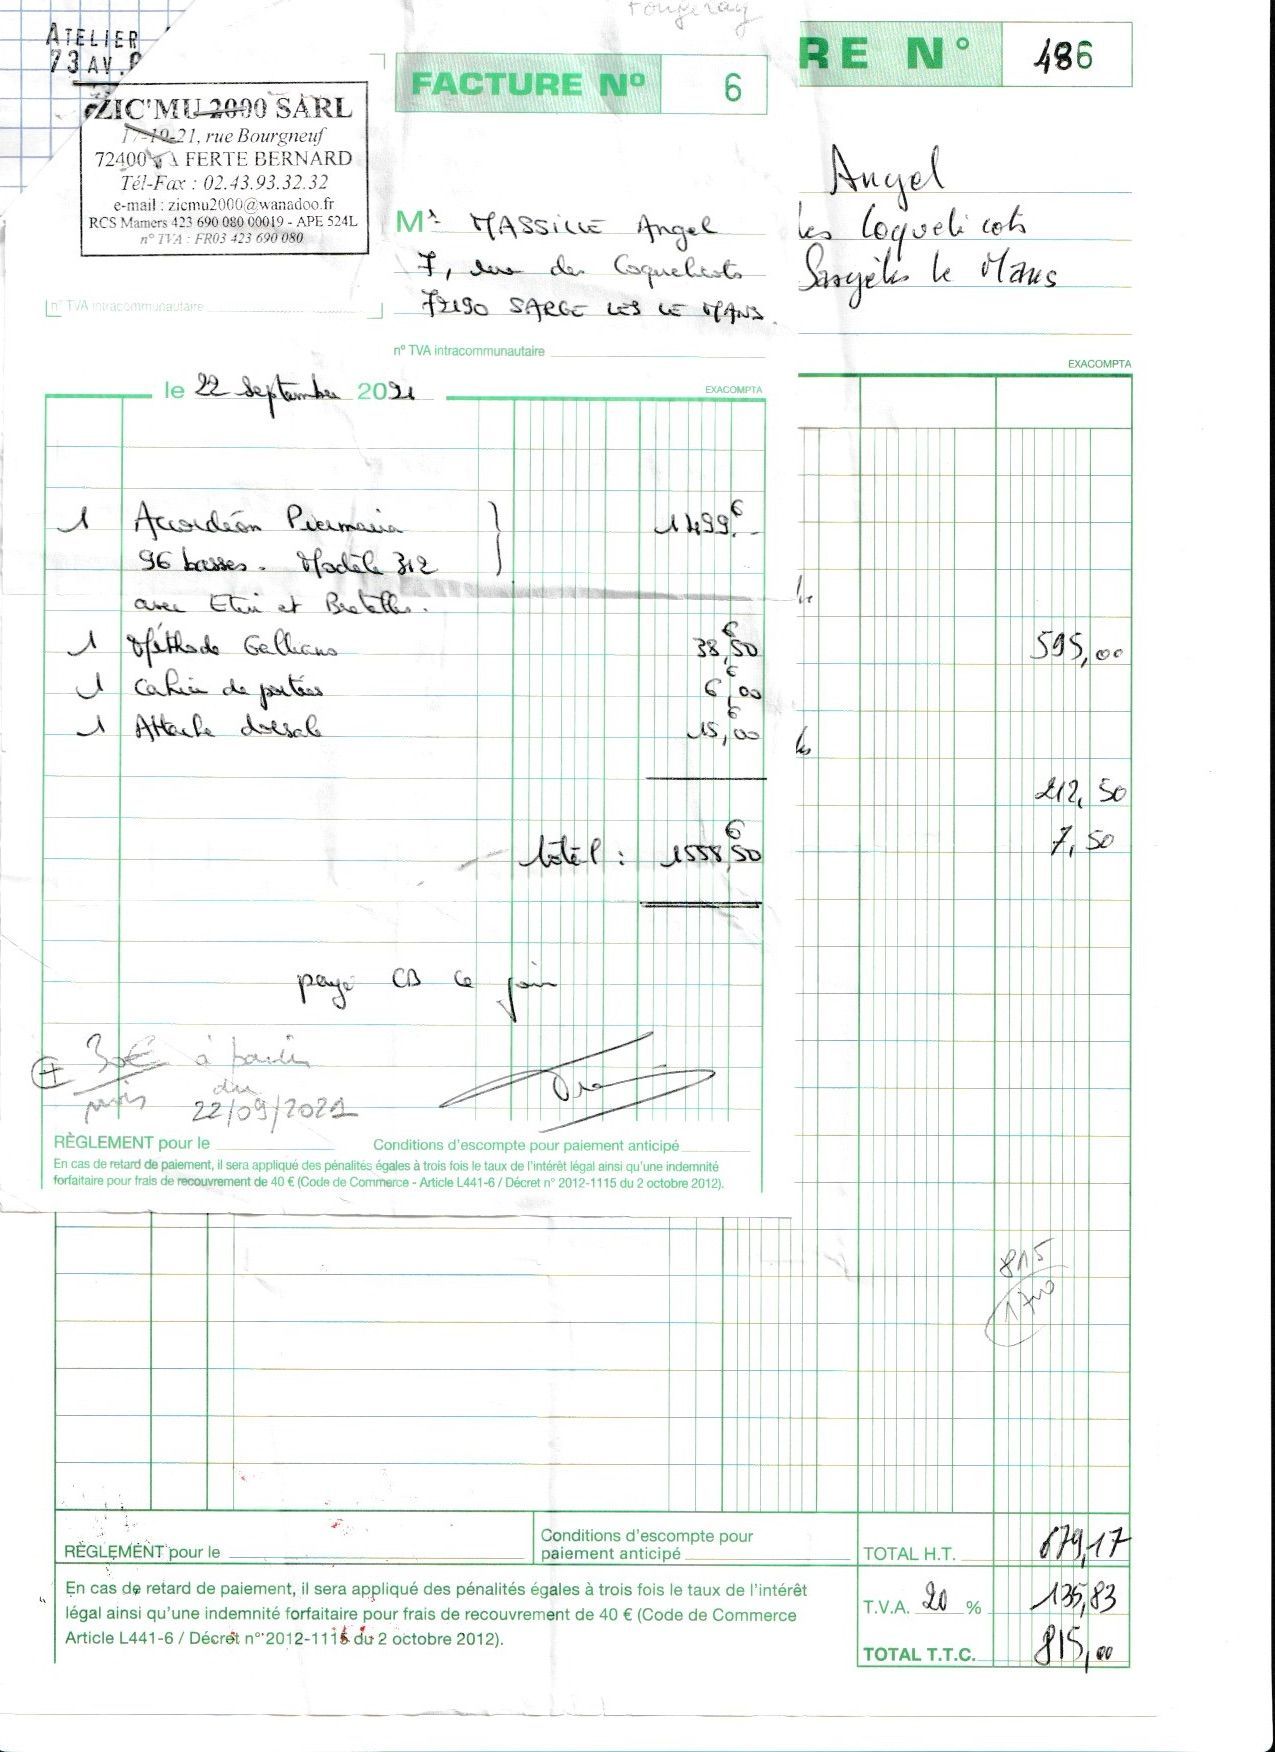 ATELIER
73 AV. P
ZIC'MU 2000 SARL
17-19-21, rue Bourgneuf
72400 LA FERTE BERNARD
Tél-Fax : 02.43.93.32.32
e-mail : zicmu2000@wanadoo.fr
RCS Mamers 423 690 080 00019 - APE 524L
n° TVA : FR03 423 690 080
n° TVA intracommunautaire
FACTURE N° 6
Mr MASSILLE Angel
7, rue des Coquelicots
72190 SARGE LES LE MANS.
n° TVA intracommunautaire
le 22 Septembre 2021
EXACOMPTA
1 Accordéon Piermaria 1499€.-
96 basses. Modèle 312
avec Etui et Bretelles.
1 Méthode Galliano 38€,50
1 Cahier de portées 6€,00
1 Attache dorsale 15€,00
total : 1558€,50
payé CB ce jour
+ 30€ à partir
/mois du
22/09/2021
RÈGLEMENT pour le Conditions d'escompte pour paiement anticipé
En cas de retard de paiement, il sera appliqué des pénalités égales à trois fois le taux de l'intérêt légal ainsi qu'une indemnité
forfaitaire pour frais de recouvrement de 40 € (Code de Commerce - Article L441-6 / Décret n° 2012-1115 du 2 octobre 2012).
RE N° 486
Angel
les Coquelicots
Sargé les le Mans
EXACOMPTA
595,00
212,50
7,50
815
RÈGLEMENT pour le
Conditions d'escompte pour
paiement anticipé
TOTAL H.T. 679,17
En cas de retard de paiement, il sera appliqué des pénalités égales à trois fois le taux de l'intérêt
légal ainsi qu'une indemnité forfaitaire pour frais de recouvrement de 40 € (Code de Commerce
Article L441-6 / Décret n° 2012-1115 du 2 octobre 2012).
T.V.A. 20 % 135,83
TOTAL T.T.C. 815,00